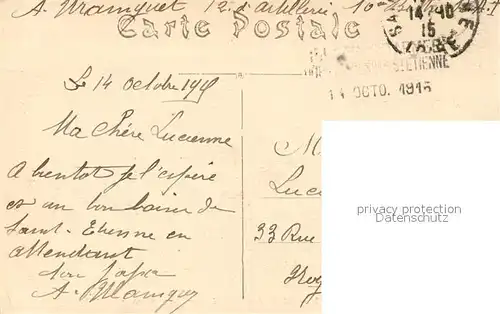 A. Mainguet 12 d'artillerie 10
Carte Postale
14-10
15
ST ETIENNE
14 OCTO. 1915
Le 14 Octobre 1915
Ma Chère Lucienne
A bientôt je l'espère
et un bon baiser de
Saint-Etienne en
attendant
ton papa
A. Mainguet
M
Luci
33 Rue
privacy protection
Datenschutz